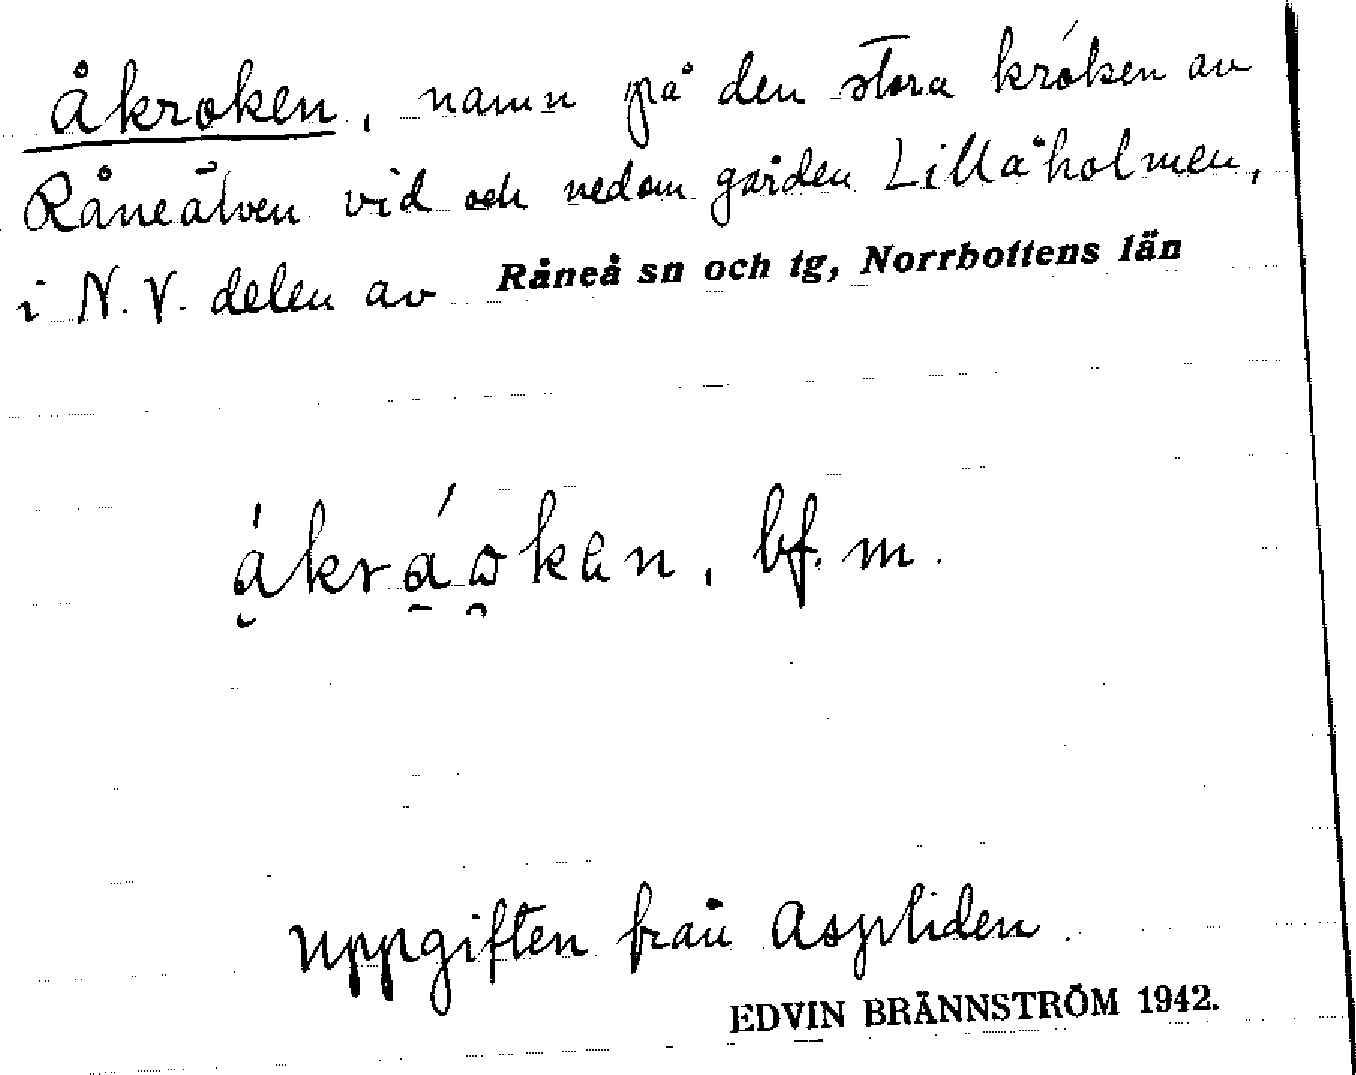 Åkroken, namn på den stora kroken av
Råneälven vid och nedom gården Lillåholmen,
i N.V. delen av Råneå sn och tg, Norrbottens län
bf. m.
Uppgiften från Aspliden
EDVIN BRÄNNSTRÖM 1942.